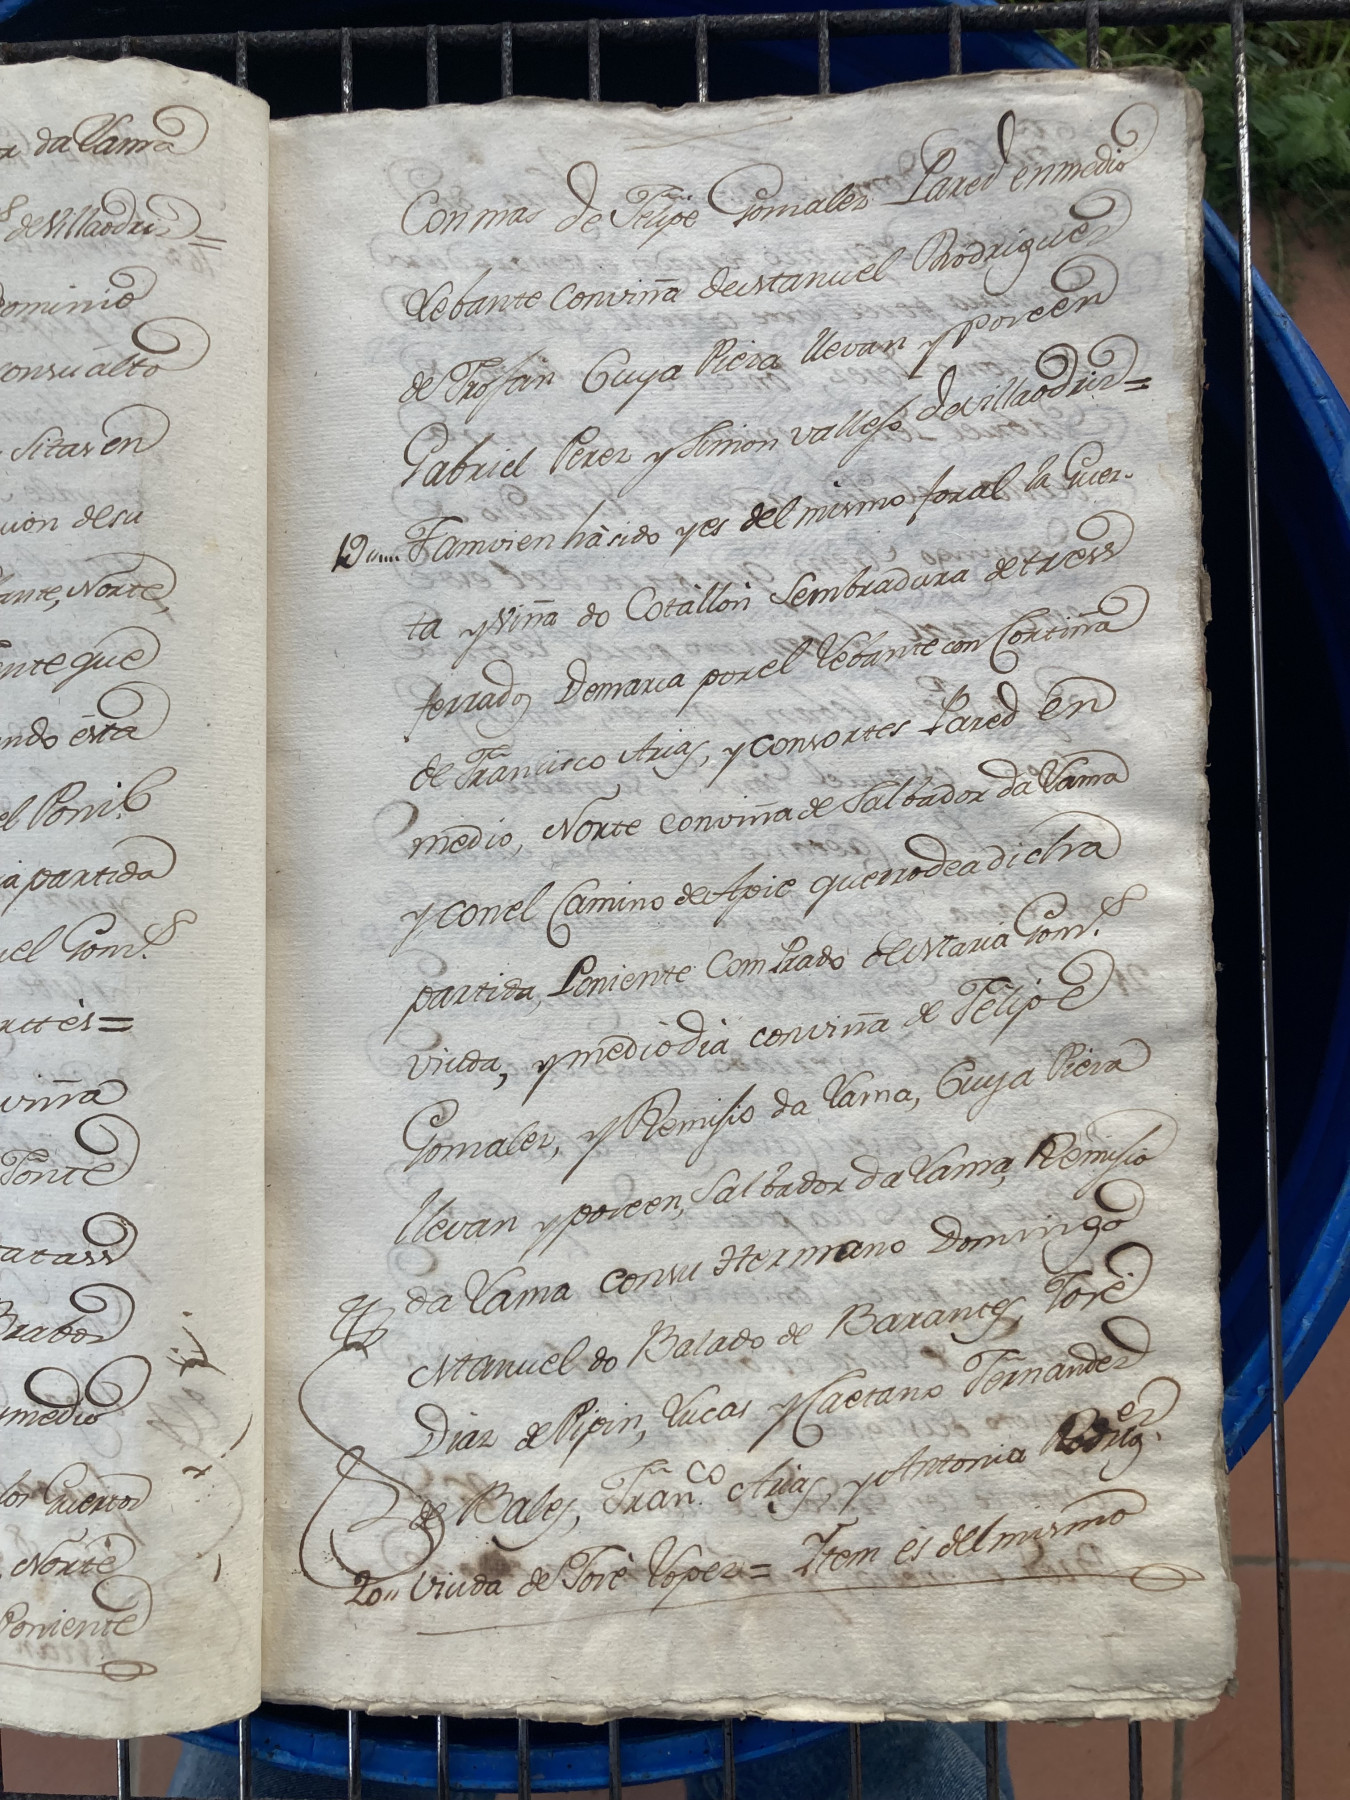 da Lama
de Villaodriz=
Dominio
con su alto
Sitas en
de su
Norte,
ente que
ando esta
el Ponie
ia partida
uel Gomz
viña
Fonte
medio
los Guertos
Norte
Poniente
Con mas de Felipe Gomalez Pared enmedio
Lebante con viña de Manuel Rodriguez
de Trossan Cuya Pieza llevan y poseen
Gabriel Perez y Simon Vallejo de Villaodriz=
19 Tamvien há sido y es del mismo foral la Guer-
ta y Viña do Cotallon Sembradura de tress
ferrados Demarca por el Lebante con Cortiña
de Francisco Arias, y consortes Pared en
medio, Norte con viña de Salbador da Lama
y con el Camino de Apie que rrodea dicha
partida, Poniente Com Prado de Maria Gomz
viuda, y mediodia con viña de Felipe
Gomalez, y Remisio da Lama, Cuya Pieza
llevan y poseen, Salbador da Lama, Remisio
da Lama con su Hermano Domingo
Manuel do Balado de Barantes, Josè
Diaz de Pipin, Lucas y Caetano Fernandez
de Bales, Franco Arias, y Antonia Rodrigez
20 Viuda de Josè Lopez= Item ès del mismo